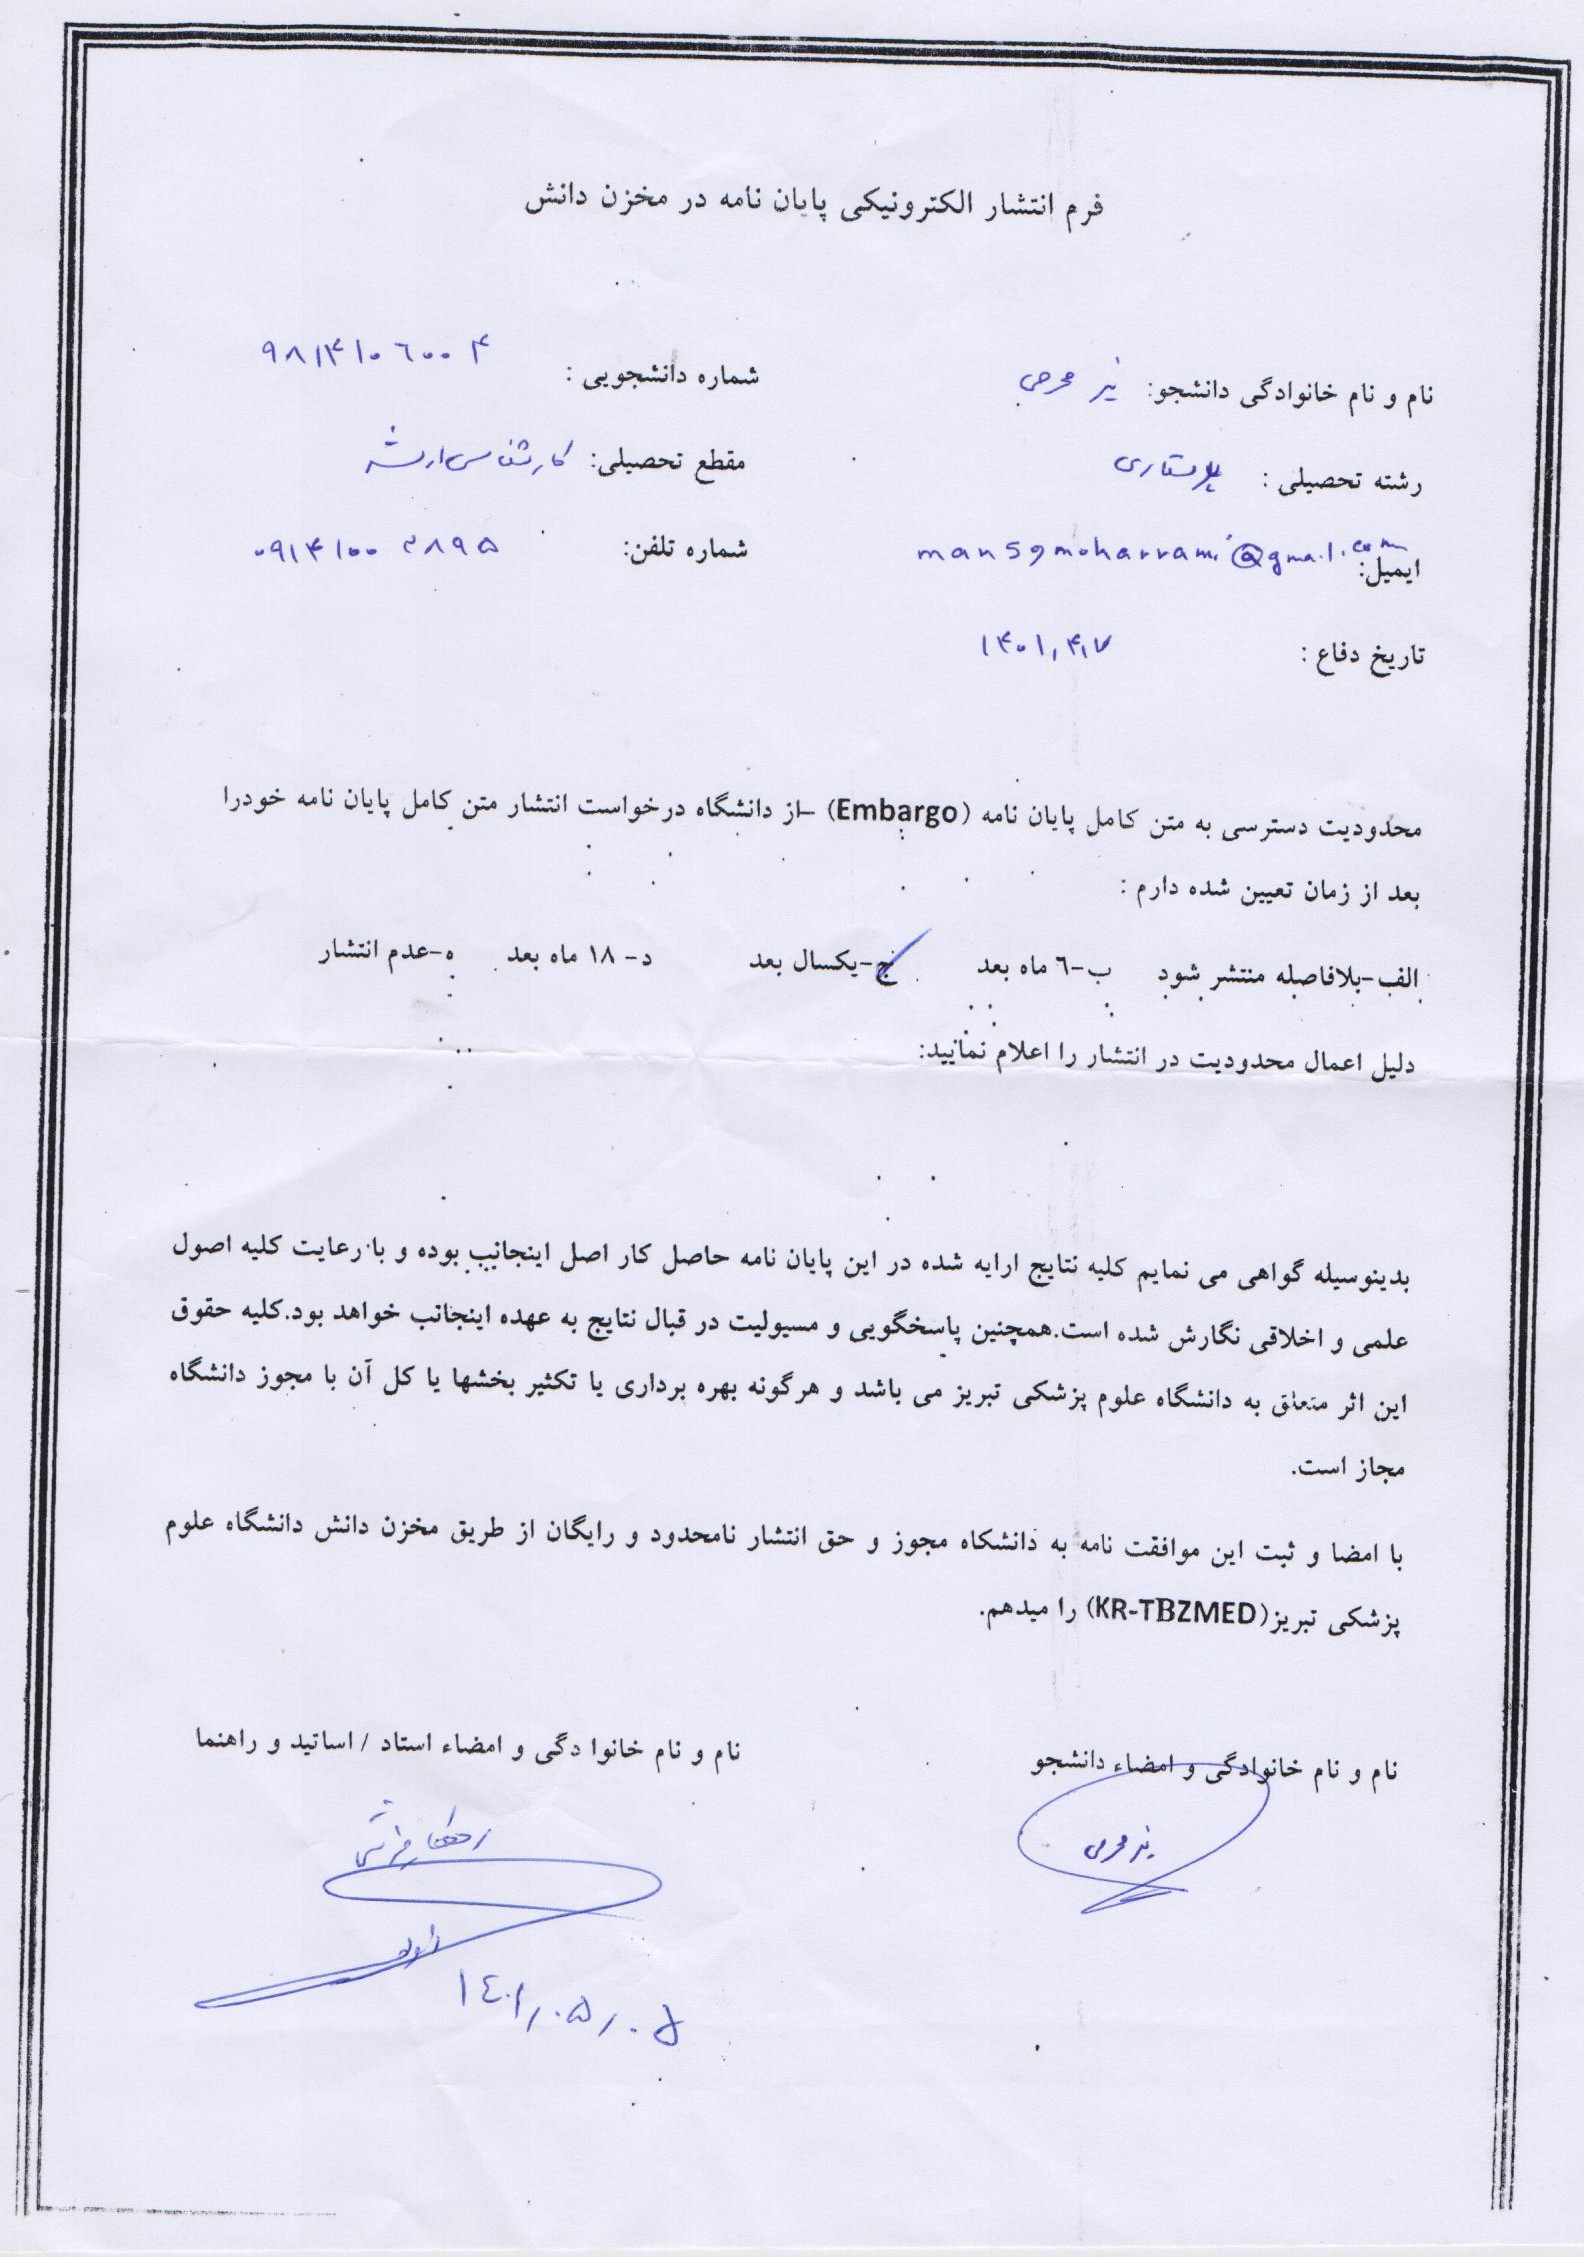 فرم انتشار الکترونیکی پایان نامه در مخزن دانش
نام و نام خانوادگی دانشجو: نیر محرمی شماره دانشجویی : ۹۸۱۴۱۰۶۰۰۴
رشته تحصیلی : پرستاری مقطع تحصیلی: کارشناسی ارشد
ایمیل: شماره تلفن:
تاریخ دفاع : ۱۴۰۱,۴,۷
محدودیت دسترسی به متن کامل پایان نامه (Embargo) –از دانشگاه درخواست انتشار متن کامل پایان نامه خودرا
بعد از زمان تعیین شده دارم :
الف-بلافاصله منتشر شود ب-٦ ماه بعد ج-یکسال بعد د- ۱۸ ماه بعد ه-عدم انتشار
دلیل اعمال محدودیت در انتشار را اعلام نمایید:
بدینوسیله گواهی می نمایم کلیه نتایج ارایه شده در این پایان نامه حاصل کار اصل اینجانب بوده و با رعایت کلیه اصول
علمی و اخلاقی نگارش شده است.همچنین پاسخگویی و مسیولیت در قبال نتایج به عهده اینجانب خواهد بود.کلیه حقوق
این اثر متعلق به دانشگاه علوم پزشکی تبریز می باشد و هرگونه بهره برداری یا تکثیر بخشها یا کل آن با مجوز دانشگاه
مجاز است.
با امضا و ثبت این موافقت نامه به دانشکاه مجوز و حق انتشار نامحدود و رایگان از طریق مخزن دانش دانشگاه علوم
پزشکی تبریز(KR-TBZMED) را میدهم.
نام و نام خانوادگی و امضاء دانشجو نام و نام خانوا دگی و امضاء استاد / اساتید و راهنما
نیر محرمی